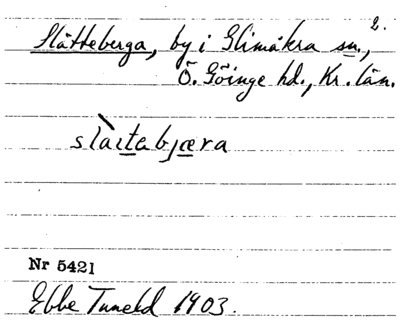 2.
Slätteberga, by i Glimåkra sn.,
Ö. Göinge hd., Kr. län.
slàıtabjæra
Nr 5421
Ebbe Tuneld 1903.